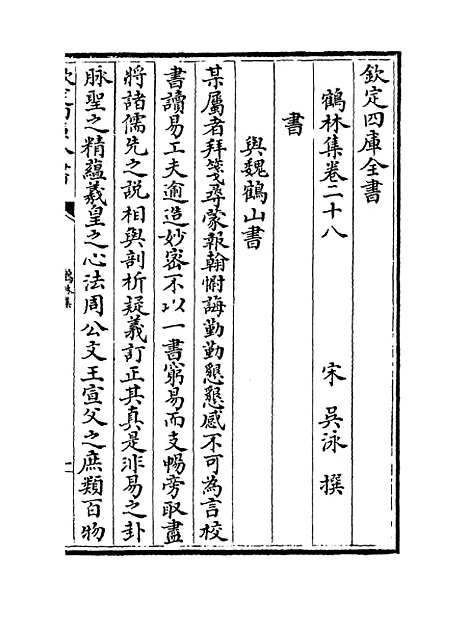 欽定四庫全書
鶴林集卷二十八
宋 吳泳 撰
書
與魏鶴山書
某屬者拜箋尋蒙報翰惻誨勤勤懇懇感不可為言校
書讀易工夫逾造妙密不以一書窮易而支暢旁取盡
將諸儒先之說相與剖析疑義訂正其真是非易之卦
脉聖之精蘊羲皇之心法周公文王宣父之庶類百物
欽定四庫全書
鶴林集
一